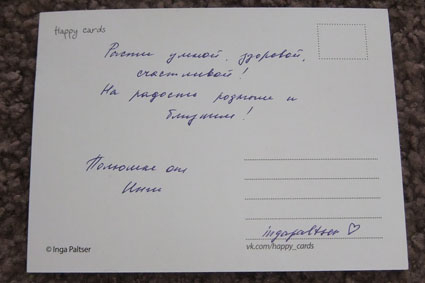 Happy cards
Расти умной, здоровой,
счастливой!
На радость родным и
близким!
от
Инги
ingapaltser ♡
vk.com/happy_cards
© Inga Paltser